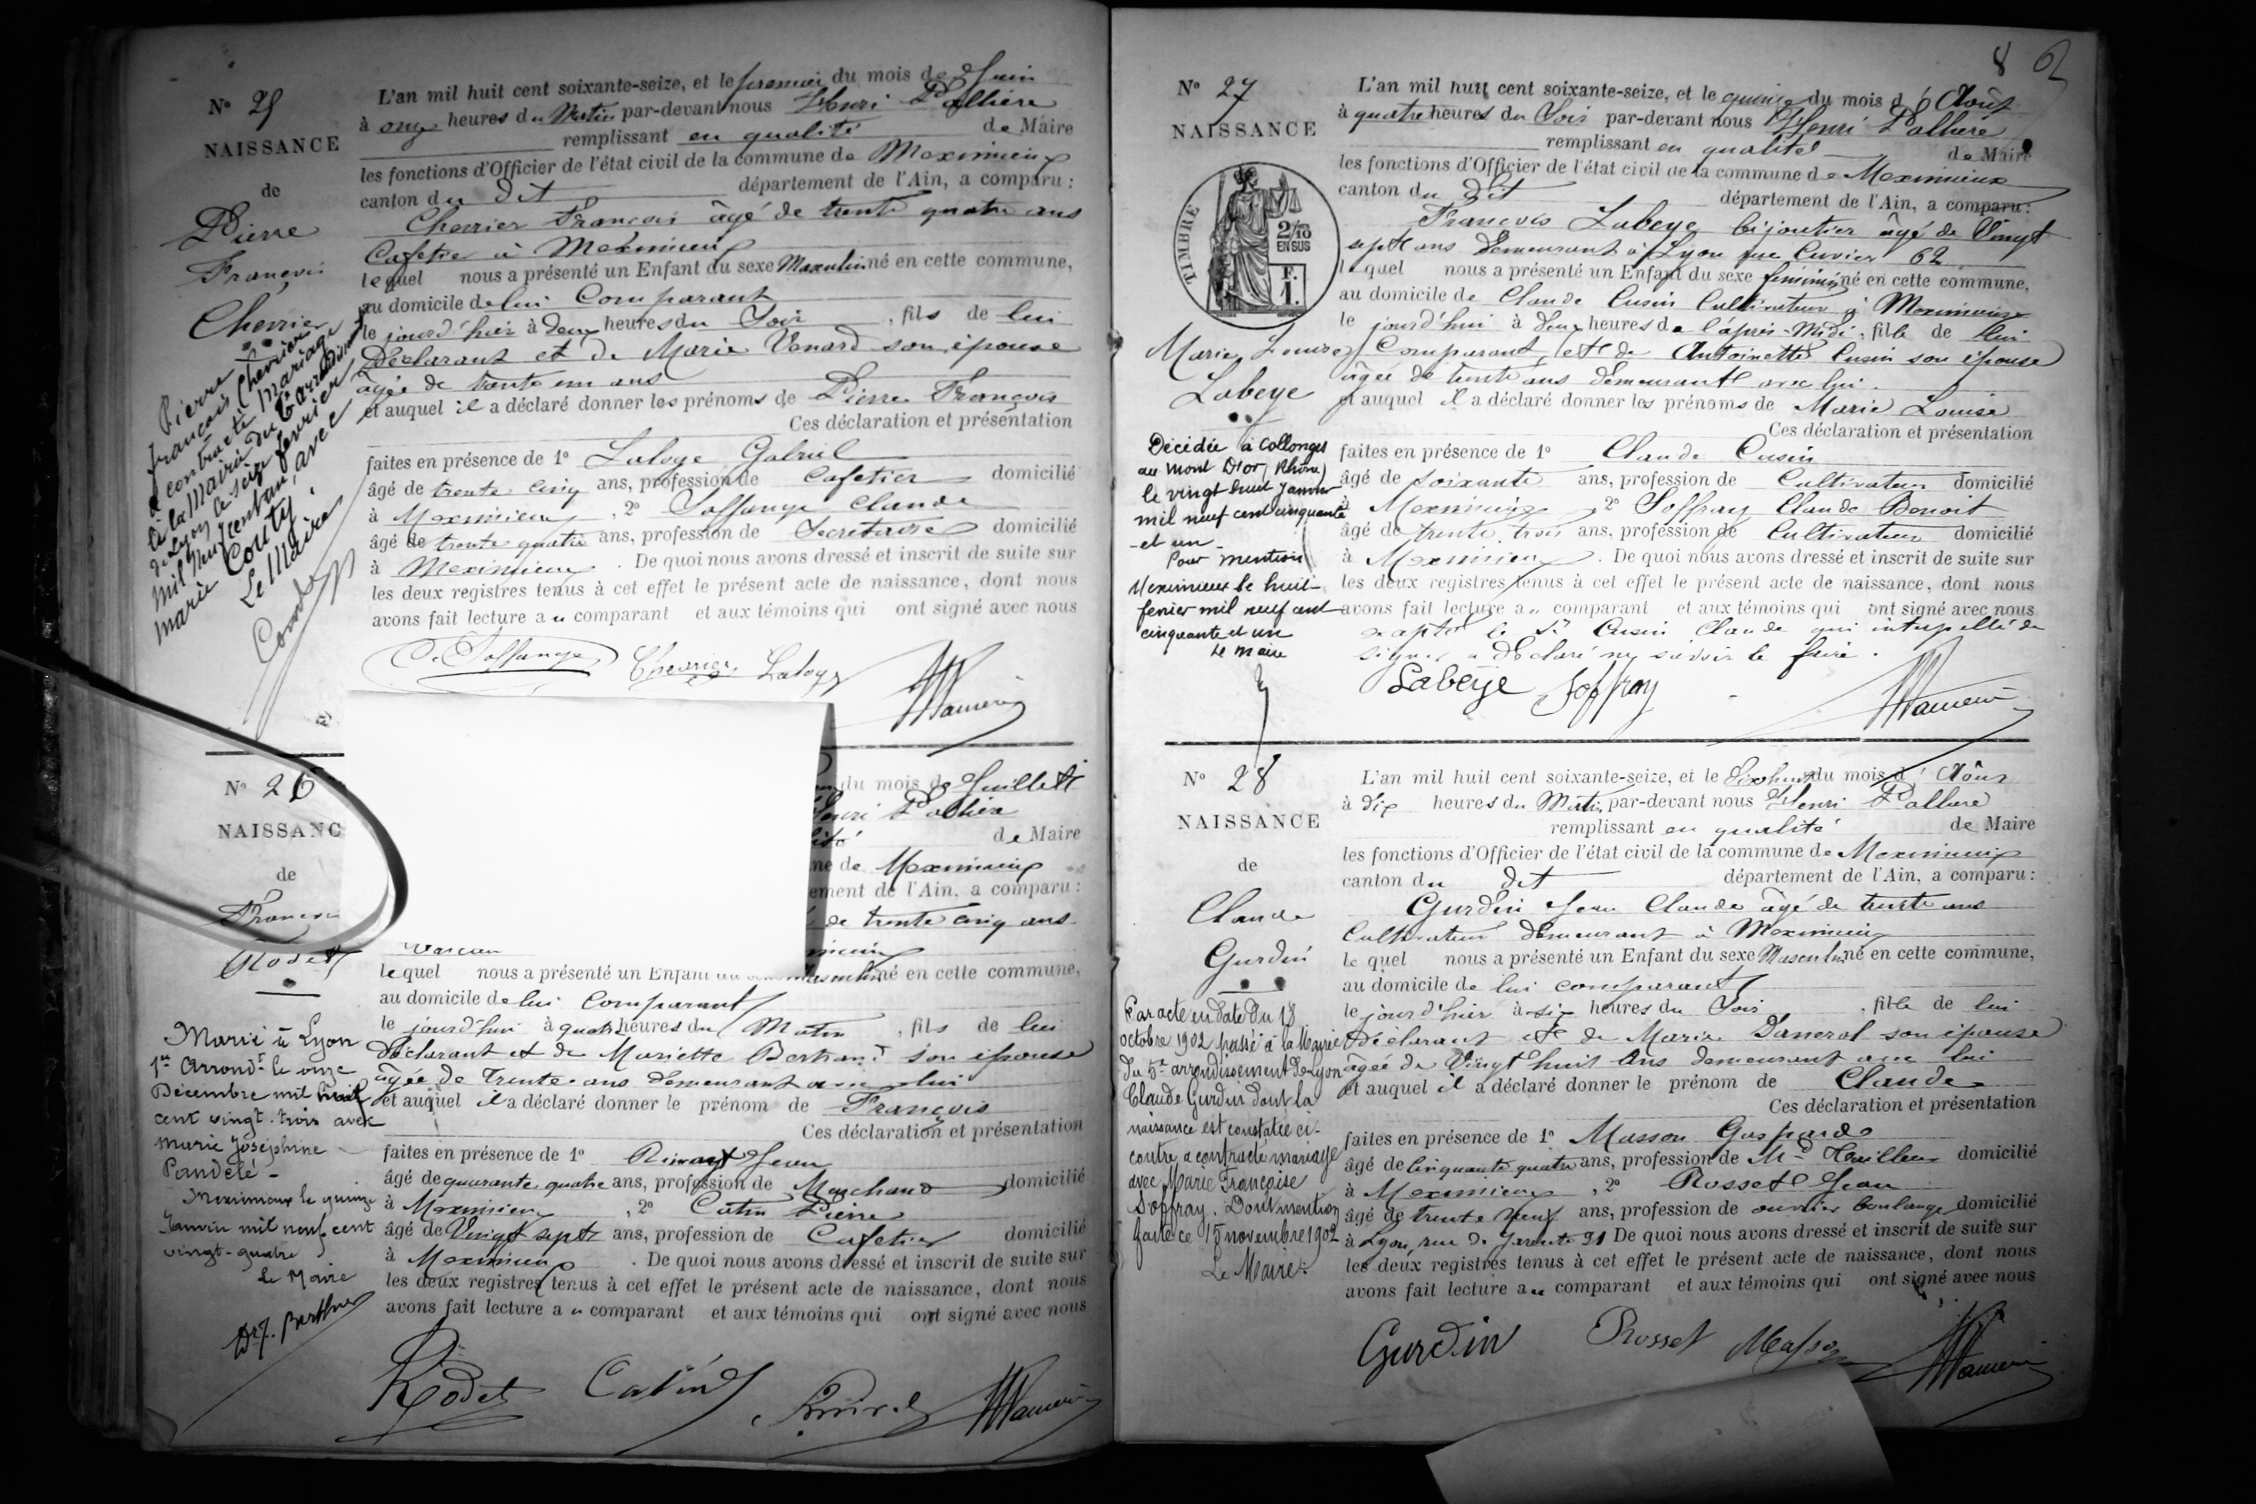 N° 25
NAISSANCE
de
Pierre
François
Chevrier
Pierre
François Chevrier
a contracté mariage
à la Mairie du
de Lyon le seize février
mil neuf cent un, avec
Marie Couty.
Le Maire
L'an mil huit cent soixante-seize, et le premier du mois de Juin
à onze heures du Matin par-devant nous Henri
remplissant en qualité de Maire
les fonctions d'Officier de l'état civil de la commune de Meximieux
canton du dit département de l'Ain, a comparu :
Chevrier François âgé de trente quatre ans
Cafetier à Meximieux
lequel nous a présenté un Enfant du sexe Masculin né en cette commune,
au domicile de lui Comparant
le jour d'hier à deux heures du Soir, fils de lui
Déclarant et de Marie Venard son épouse
âgée de trente un ans
et auquel il a déclaré donner les prénoms de Pierre François
Ces déclaration et présentation
faites en présence de 1° Laloge Gabriel
âgé de trente cinq ans, profession de Cafetier domicilié
à Meximieux, 2° Soffange Claude
âgé de trente quatre ans, profession de Secrétaire domicilié
à Meximieux. De quoi nous avons dressé et inscrit de suite sur
les deux registres tenus à cet effet le présent acte de naissance, dont nous
avons fait lecture au comparant et aux témoins qui ont signé avec nous
C. Soffange Chevrier Laloge
N° 26
NAISSANC
de
François
Rodet
Marié à Lyon
1er Arrondt le onze
Décembre mil neuf
cent vingt-trois avec
Marie Joséphine
Pandelé -
Meximieux le quinze
Janvier mil neuf cent
vingt-quatre
Le Maire
du mois de Juillet
Henri
de Maire
de Meximieux
ement de l'Ain, a comparu :
de trente cinq ans
lequel nous a présenté un Enfant du sexe Masculin né en cette commune,
au domicile de lui Comparant
le jour d'hui à quatre heures du Matin, fils de lui
déclarant et de Mariette Bertrand son épouse
âgée de trente ans demeurant avec lui
et auquel il a déclaré donner le prénom de François
Ces déclaration et présentation
faites en présence de 1° Jean
âgé de quarante quatre ans, profession de Marchand domicilié
à Meximieux, 2° Catin Pierre
âgé de Vingt sept ans, profession de Cafetier domicilié
à Meximieux. De quoi nous avons dressé et inscrit de suite sur
les deux registres tenus à cet effet le présent acte de naissance, dont nous
avons fait lecture au comparant et aux témoins qui ont signé avec nous
Rodet Catin
8
N° 27
NAISSANCE
TIMBRE
2/10 EN SUS
F. 1.
Marie Louise
Labeye
Décédée à Collonges
au Mont D'or, Rhône)
le vingt huit Janvier
mil neuf cent cinquante
-et un-
Pour mention
Meximieux le huit
fevrier mil neuf cent
cinquante et un
Le Maire
L'an mil huit cent soixante-seize, et le quinze du mois d'Août
à quatre heures du Soir par-devant nous Henri
remplissant en qualité de Maire
les fonctions d'Officier de l'état civil de la commune de Meximieux
canton du dit département de l'Ain, a comparu :
François Labeye bijoutier âgé de Vingt
sept ans demeurant à Lyon rue Cuvier 62
lequel nous a présenté un Enfant du sexe féminin né en cette commune,
au domicile de Claude Cusin Cultivateur à Meximieux
le jour d'hui à deux heures de l'après-Midi, fille de lui
Comparant, et de Antoinette Cusin son épouse
âgée de trente ans demeurant avec lui.
et auquel il a déclaré donner les prénoms de Marie Louise
Ces déclaration et présentation
faites en présence de 1° Claude Cusin
âgé de soixante ans, profession de Cultivateur domicilié
à Meximieux, 2° Soffray Claude Benoit
âgé de trente trois ans, profession de Cultivateur domicilié
à Meximieux. De quoi nous avons dressé et inscrit de suite sur
les deux registres tenus à cet effet le présent acte de naissance, dont nous
avons fait lecture au comparant et aux témoins qui ont signé avec nous
excepté le Sr Cusin Claude qui interpellé de
signer a déclaré ne savoir le faire.
Labeye Soffray
N° 28
NAISSANCE
de
Claude
Gurdin
Par acte en date du 18
octobre 1902 passé à la Mairie
du 5e arrondissement de Lyon
Claude Gurdin dont la
naissance est constatée ci-
contre a contracté mariage
avec Marie Françoise
Soffray. Dont mention
faite ce 15 novembre 1902
Le Maire.
L'an mil huit cent soixante-seize, et le dixhuit du mois d'Août
à dix heures du Matin par-devant nous Henri
remplissant en qualité de Maire
les fonctions d'Officier de l'état civil de la commune de Meximieux
canton du dit département de l'Ain, a comparu :
Gurdin Jean Claude âgé de trente ans
Cultivateur demeurant à Meximieux
le quel nous a présenté un Enfant du sexe Masculin né en cette commune,
au domicile de lui comparant
le jour d'hier à six heures du Soir, fils de lui
déclarant et de Marie son épouse
âgée de Vingt huit ans demeurant avec lui
et auquel il a déclaré donner le prénom de Claude
Ces déclaration et présentation
faites en présence de 1° Masson Gaspard
âgé de cinquante quatre ans, profession de Md Tailleur domicilié
à Meximieux, 2° Rosset Jean
âgé de trente neuf ans, profession de ouvrier boulanger domicilié
à Lyon, rue de 91 De quoi nous avons dressé et inscrit de suite sur
les deux registres tenus à cet effet le présent acte de naissance, dont nous
avons fait lecture au comparant et aux témoins qui ont signé avec nous
Gurdin Rosset Masson